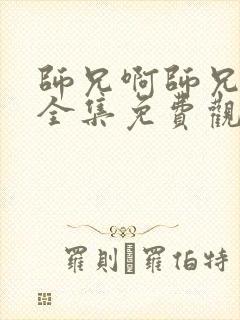 師兄啊師兄
全集免費觀
羅則 羅伯特